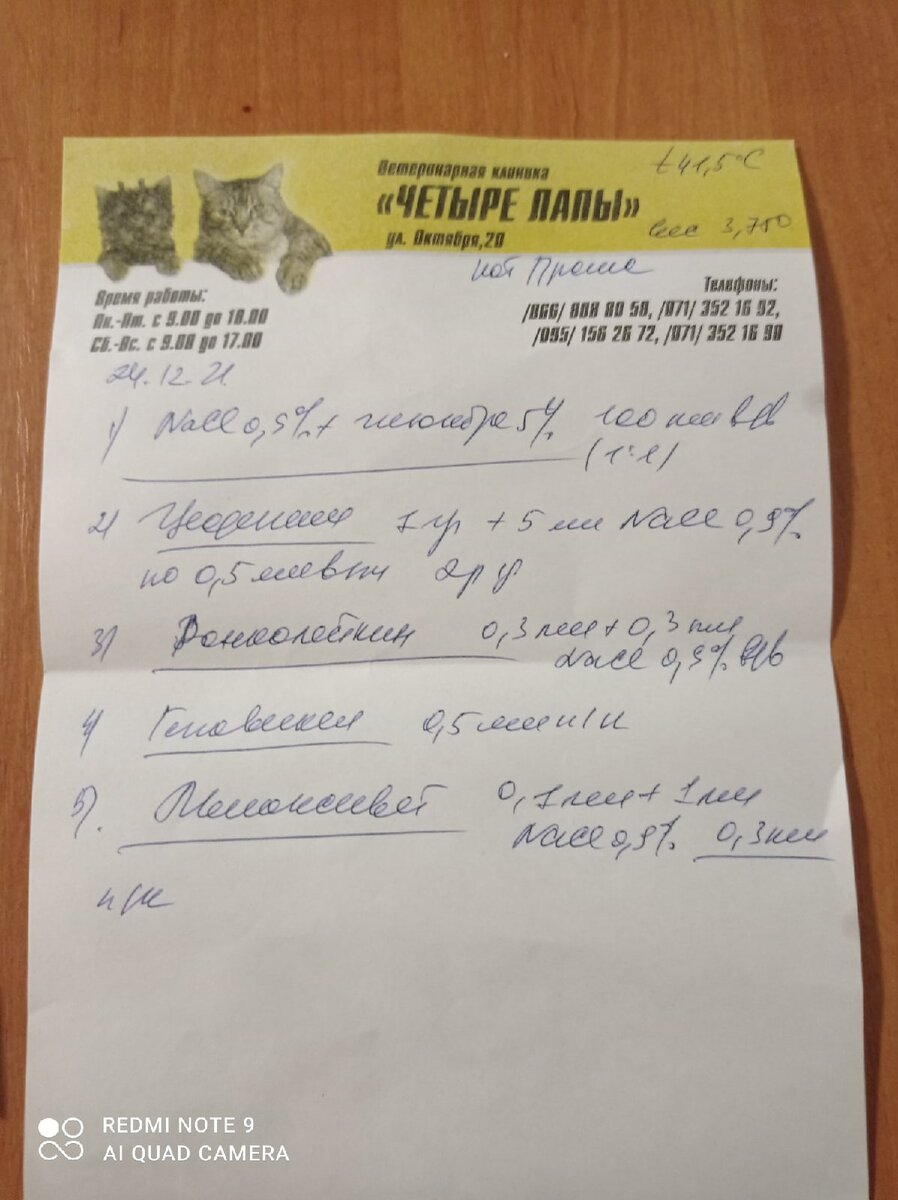 Ветеринарная клиника
«ЧЕТЫРЕ ЛАПЫ»
ул. Октября,20
t 41,5°C
вес 3,750
кот Проша
Время работы:
Пн.-Пт. с 9.00 до 18.00
Сб.-Вс. с 9.00 до 17.00
Телефоны:
/066/ 808 80 50, /071/ 352 16 92,
/095/ 156 26 72, /071/ 352 16 90
24.12.21
1) NaCl 0,9% + глюкоза 5% 100 мл в/в
(1:1)
2) 1 гр + 5 мл NaCl 0,9%
по 0,5 мл в/м 2 р/д
3) Ронколейкин 0,3 мл + 0,3 мл
NaCl 0,9% в/в
4) 0,5 мл п/к
5). Мелоксивет 0,1 мл + 1 мл
NaCl 0,9% 0,3 мл
п/к
REDMI NOTE 9
AI QUAD CAMERA